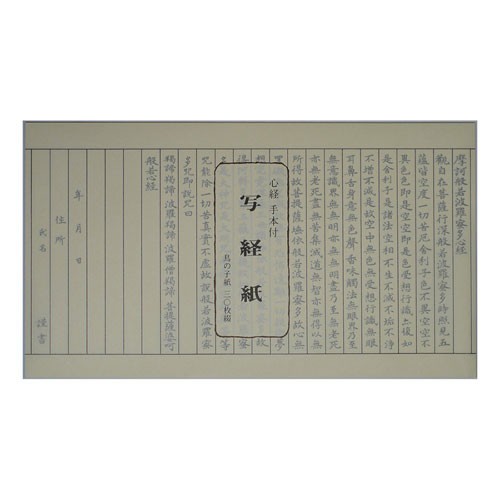 摩訶般若波羅蜜多心経
觀自在菩薩行深般若波羅蜜多時照見五
蘊皆空度一切苦厄舍利子色不異空空不
異色色即是空空即是色受想行識亦復如
是舍利子是諸法空相不生不滅不垢不浄
不増不減是故空中無色無受想行識無眼
耳鼻舌身意無色聲香味觸法無眼界乃至
無意識界無無明亦無無明盡乃至無老死
亦無老死盡無苦集滅道無智亦無得以無
所得故菩提薩埵依般若波羅蜜多故心無
心経 手本付
写経紙
鳥の子紙 二〇枚綴
咒能除一切苦真實不虚故説般若波羅蜜
多咒即説咒曰
羯諦羯諦 波羅羯諦 波羅僧羯諦 菩提薩婆訶
般若心経
年 月 日
住所
氏名 謹書